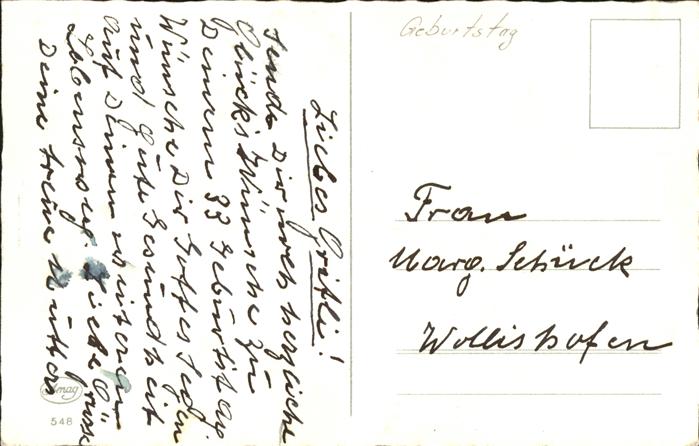 Liebes Gritli!
Sende Dir noch herzliche
Glücks Wünsche zu
Deinem 33 Geburtstag
Wünsche Dir Gottes Segen
und gute Gesundheit
auf Deinem weiteren
Lebensweg Liebe Grüsse
Deine treue Mutter
Amag
548
Geburtstag
Frau
Marg. Schück
Wollishofen